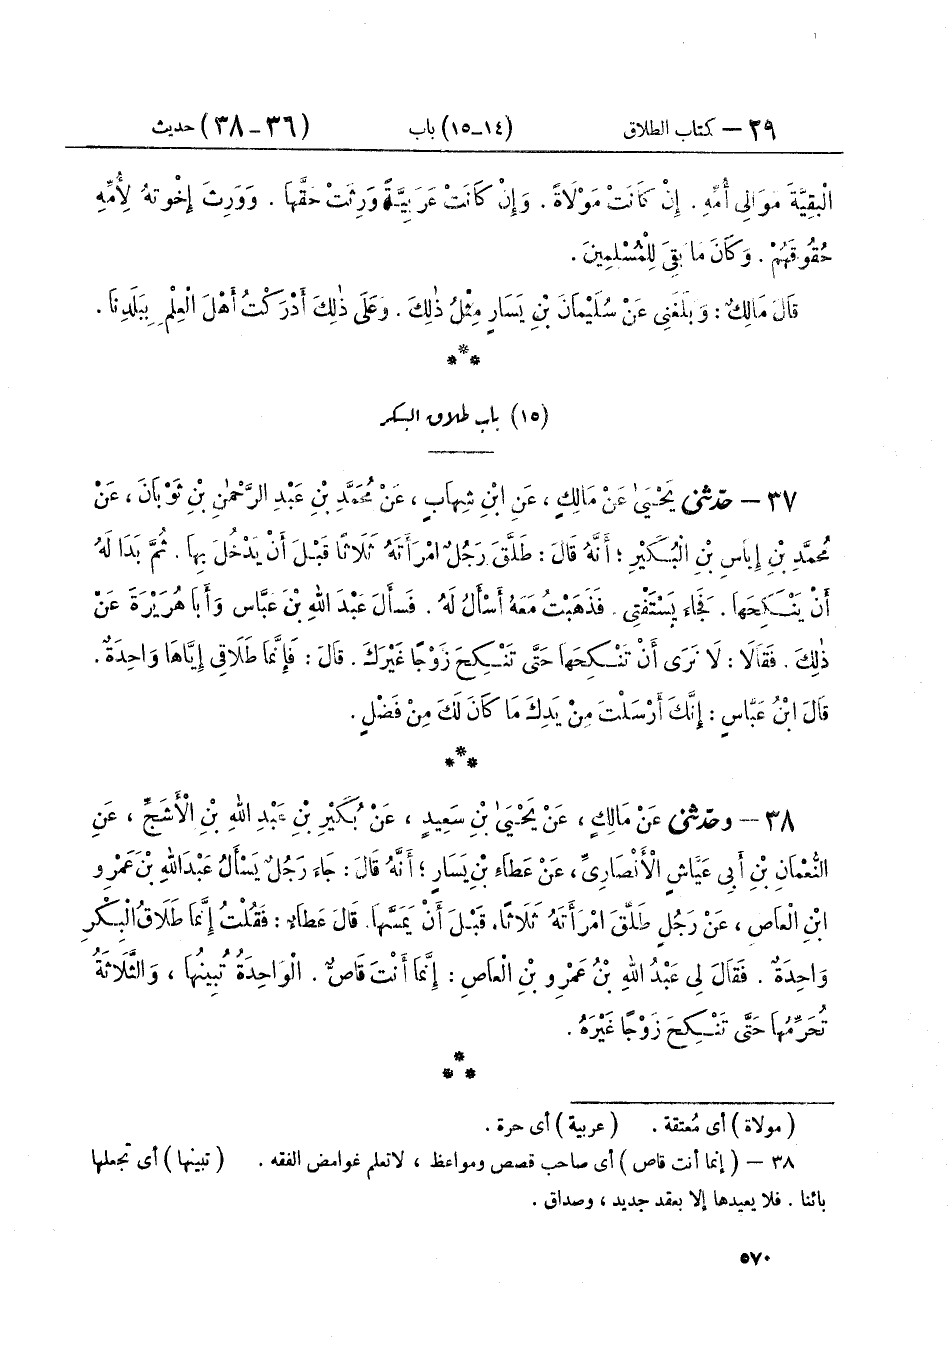 ٢٩ – كتاب الطلاق (١٤-١٥) باب (٣٦-٣٨) حديث
الْبَقِيَّةَ مَوَالِى أُمِّهِ . إِنْ كَانَتْ مَوْلَاةً . وَإِنْ كَانَتْ عَرَبِيَّةً وَرِثَتْ حَقَّهَا . وَوَرِثَ إِخْوَتهُ لِأُمِّهِ
حُقُوقَهُمْ . وَكَانَ مَا بَقِىَ لِلْمُسْلِمِينَ .
قَالَ مَالِكٌ : وَبَلَغَنِى عَنْ سُلَيْمَانَ بْنِ يَسَارٍ مِثْلُ ذٰلِكَ . وَعَلَى ذٰلِكَ أَدْرَكْتُ أَهْلَ الْعِلْمِ بِبَلَدِنَا .
***
(١٥) باب طلاق البكر
٣٧ – حدّثنى يَحْيَىٰ عَنْ مَالِكٍ ، عَنِ ابْنِ شِهَابٍ ، عَنْ مُحَمَّدِ بْنِ عَبْدِ الرَّحْمٰنِ بْنِ ثَوْبَانَ ، عَنْ
مُحمَّدِ بْنِ إِيَاسِ بْنِ الْبُكَيْرِ ؛ أَنَّهُ قَالَ : طَلَّقَ رَجُلٌ امْرَأَتَهُ ثَلَاثًا قَبْلَ أَنْ يَدْخُلَ بِهَا . ثُمَّ بَدَا لَهُ
أَنْ يَنْكِحَهَا . فَجَاءَ يَسْتَفْتِى . فَذَهَبْتُ مَعَهُ أَسْأَلُ لَهُ . فَسَأَلَ عَبْدَ اللهِ بْنَ عَبَّاس وَأَبَا هُرَيْرَةَ عَنْ
ذٰلِكَ . فَقَالَا : لَا نَرَى أَنْ تَنْكِحَهَا حَتَّى تَنْكِحَ زَوْجًا غَيْرَكَ . قَالَ : فَإِنَّمَا طَلَاقِى إِيَّاهَا وَاحِدَةٌ .
قَالَ ابْنُ عَبَّاسٍ : إِنَّكَ أَرْسَلْتَ مِنْ يَدِكَ مَا كَانَ لَكَ مِنْ فَضْلٍ .
***
٣٨ – وحدّثنى عَنْ مَالِكٍ ، عَنْ يَحْيَىٰ بْنِ سَعِيدٍ ، عَنْ بُكَيْرِ بْنِ عَبْدِ اللهِ بْنِ الْأَشَجِّ ، عَنِ
النُّعْمَانِ بْنِ أَبِى عَيَّاشٍ الْأَنْصَارِىِّ ، عَنْ عَطَاءِ بْنِ يَسَارٍ ؛ أَنَّهُ قَالَ : جَاءَ رَجُلٌ يَسْأَلُ عَبْدَ اللهِ بْنَ عَمْرِو
ابْنِ الْعَاصِ ، عَنْ رَجُلٍ طَلَّقَ امْرَأَتَهُ ثَلَاثًا، قَبْلَ أَنْ يَمَسَّهَا. قَالَ عَطَاءٌ : فَقُلْتُ إِنَّمَا طَلَاقُ الْبِكْرِ
وَاحِدَةٌ . فَقَالَ لِى عَبْدُ اللهِ بْنُ عَمْرِو بْنِ الْعَاصِ : إِنَّمَا أَنْتَ قَاصٌّ . الْوَاحِدَةُ تُبِينُهَا ، وَالثَّلَاثَةُ
تُحَرِّمُهَا حَتَّى تَنْكِحَ زَوْجًا غَيْرَهُ .
***
( مولاة ) أى مُعتقة . ( عربية ) أى حرة .
٣٨ – ( إنما أنت قاص ) أى صاحب قصص ومواعظ ، لاتعلم غوامض الفقه . ( تبينها ) أى تجعلها
بائنا . فلا يعيدها إلا بعقد جديد ، وصداق .
٥٧٠